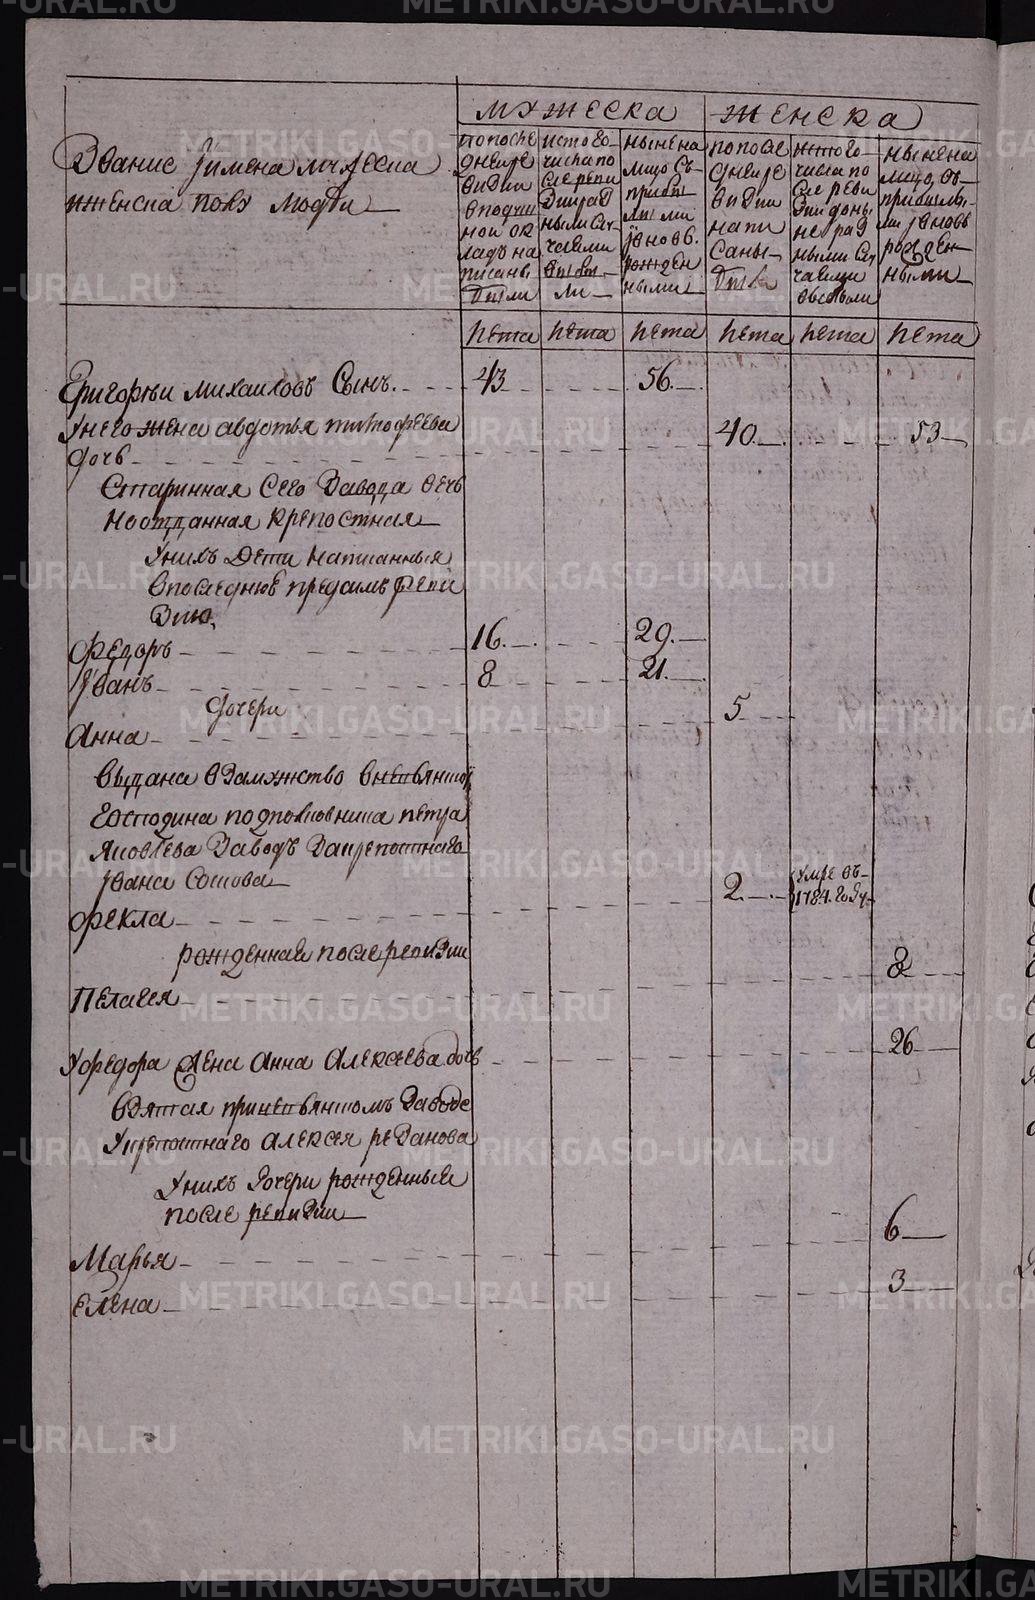 METRIKI.GASO-URAL.RU
МУЖЕСКА
ЖЕНСКА
Звание Їимена мужеска
иженска полу людеи
попосле
днеире
визии
вподуш
ной ок
ладъ на
писаны
были
истого
числа по
сле реви
зии раз
ными слу
чаями
выбы
ли
ныне на
лицо съ
прибы
лыми
Їновь
рожден
ными
попосле
днеире
визии
напи
саны
были
истого
числа по
сле реви
зии
раз
ными слу
чаями
выбыли
ныне на
лицо, съ
прибылы
ми Їновь
рожден
ными
лета лета лета лета лета лета
Григореи михаиловъ Сынъ. 43 56
Унего жена авдотья тимофеева
дочь 40 53
Старинная Сего Завода
крепостная
Унихъ Дети написанныя
впоследнюю предсимъ реви
зию
Федоръ 16. 29.
Їванъ 8 21.
дочери
Анна 5
выдана взамужство вневьянской
господина подполковника петра
Яковлева Заводъ Закрепостнаго
Ївана
Фекла 2. умре въ
1784. году
рожденная послеревизии
Пелагея 8
Уфедора Жена Анна Алексеева дочь 26
взятая приневьянскомъ Заводе
Укрепостнаго Алексея
Унихъ Дочери рожденныя
после ревизии
Марья 6
Елена 3